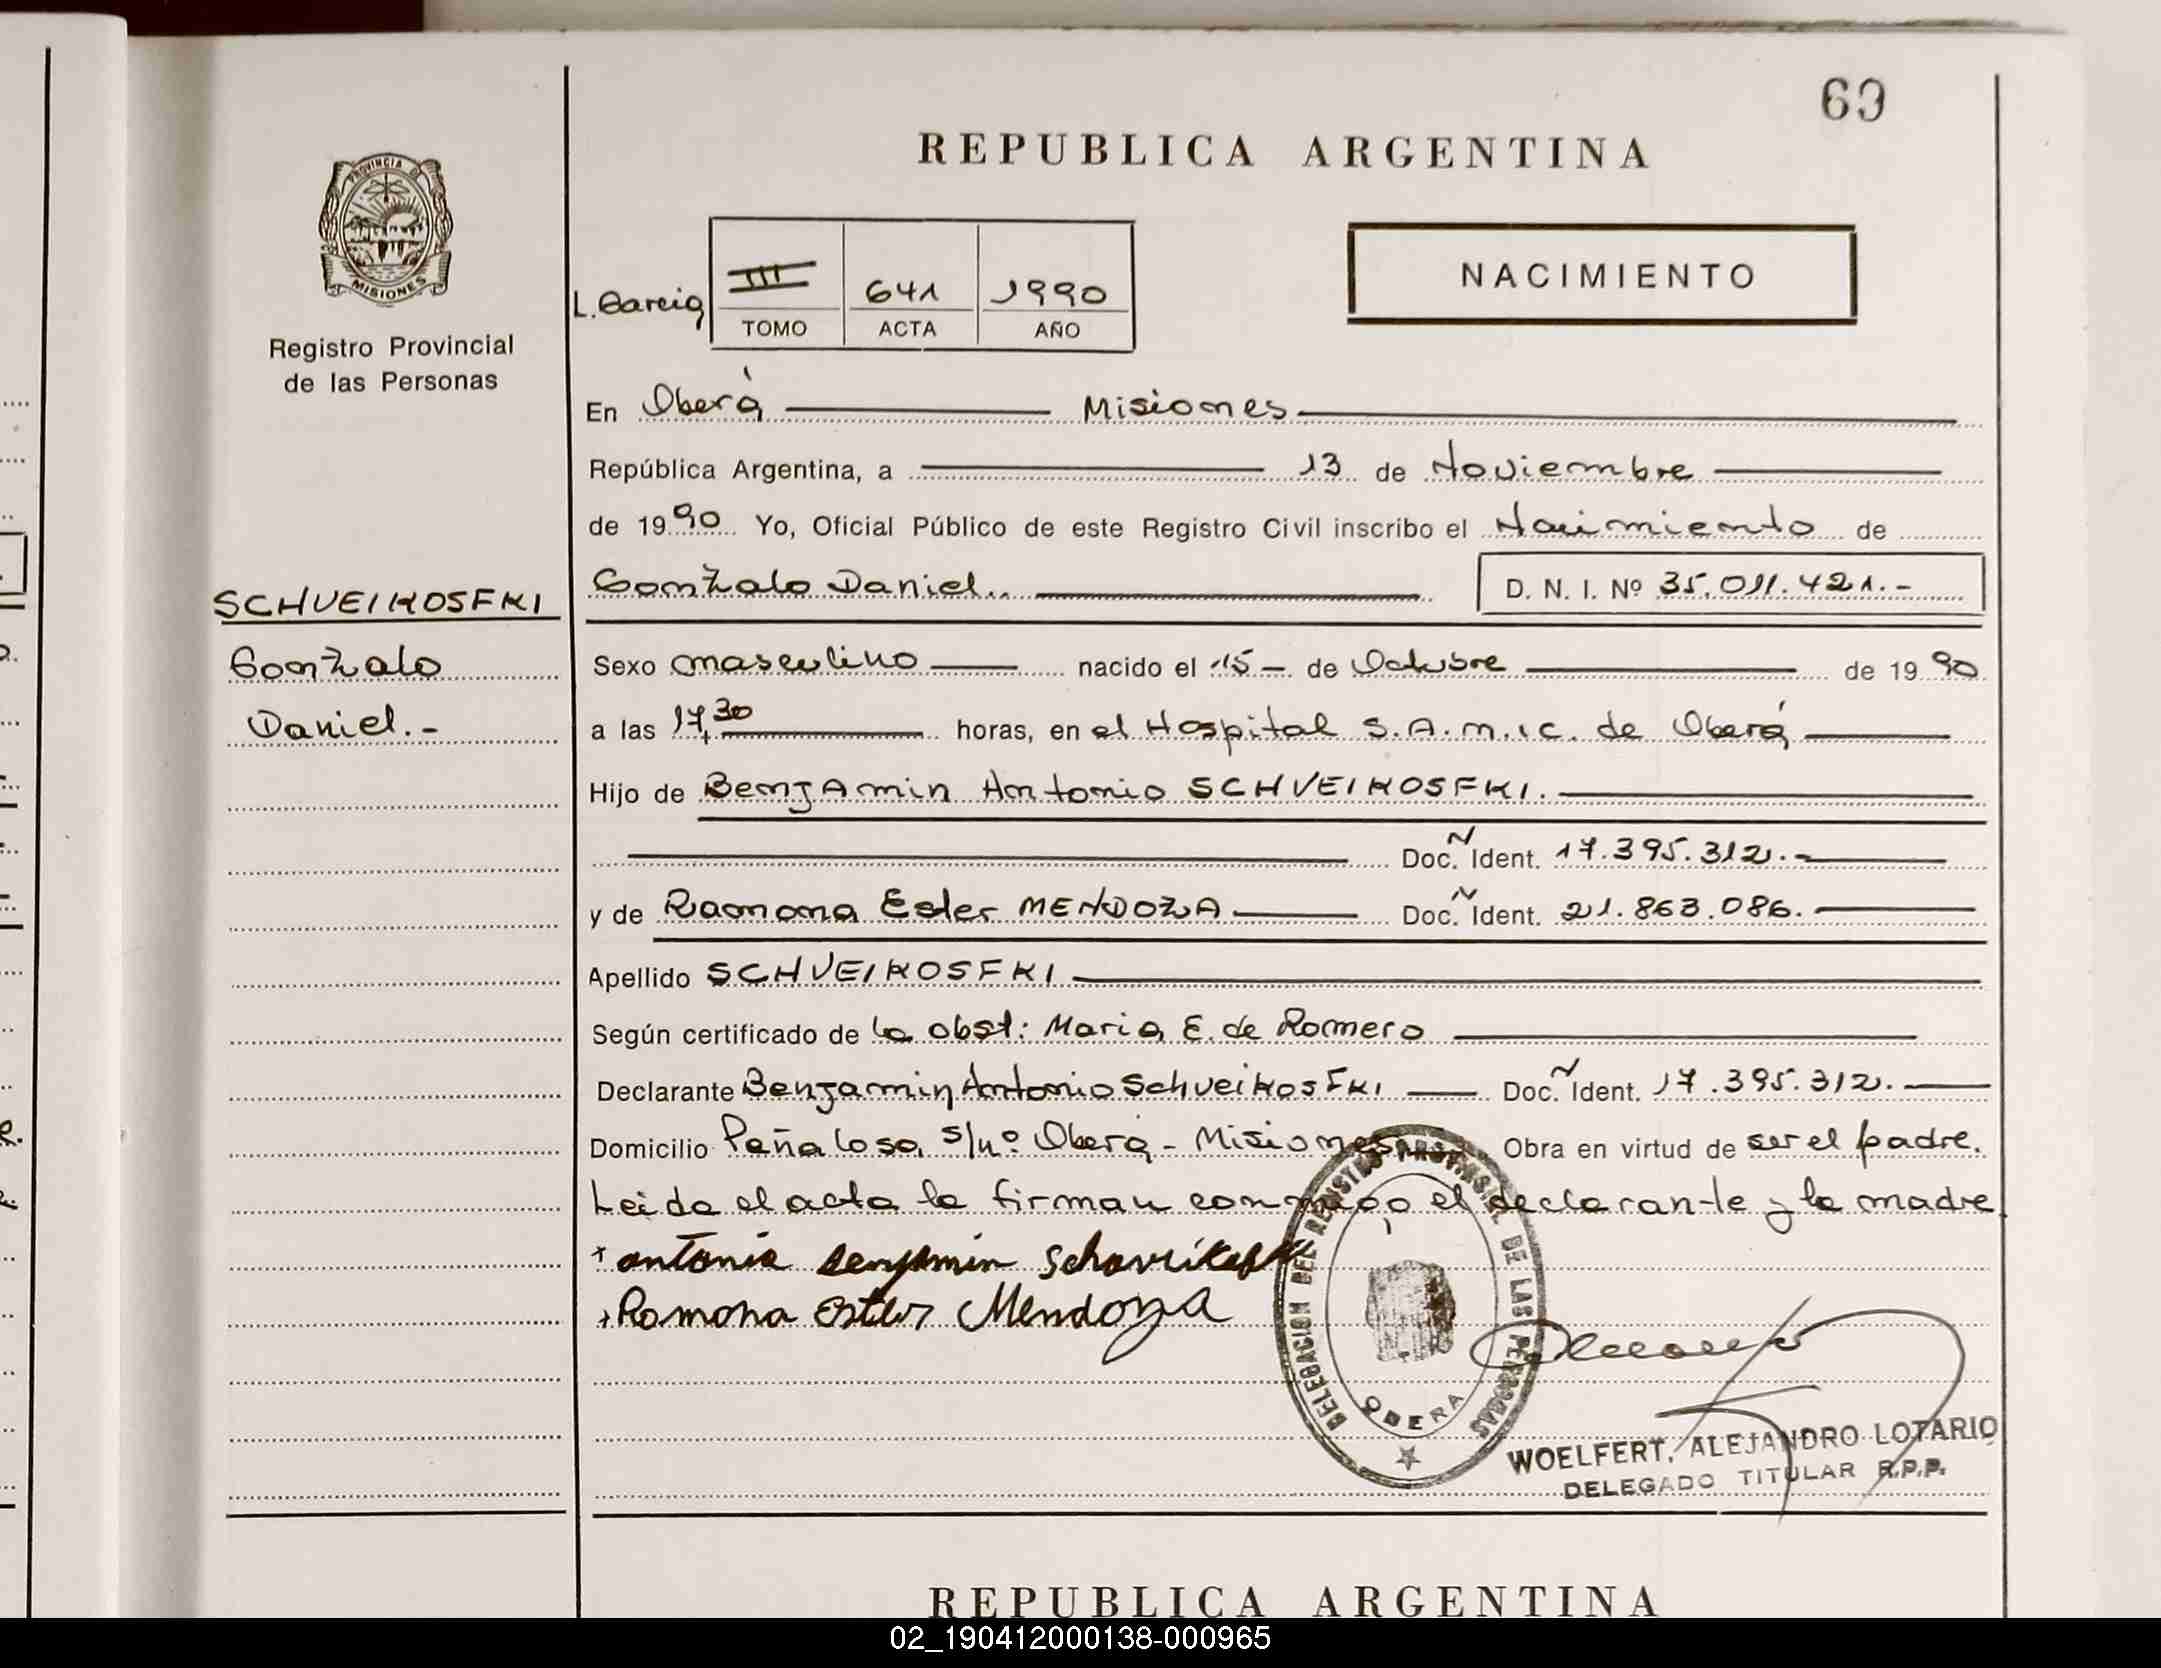 69
REPUBLICA ARGENTINA
PROVINCIA DE
MISIONES
Registro Provincial
de las Personas
L. Garcia
III 641 1990
TOMO ACTA AÑO
NACIMIENTO
En Oberá Misiones
República Argentina, a 13 de Noviembre
de 1990 Yo, Oficial Público de este Registro Civil inscribo el Nacimiento de
Gonzalo Daniel.. D. N. I. Nº 35.011.421.-
SCHVEIKOSFKI
Gonzalo
Daniel.-
Sexo masculino nacido el 15 - de Octubre de 1990
a las 17,30 horas, en el Hospital S.A.M.I.C. de Oberá
Hijo de Benjamin Antonio SCHVEIKOSFKI.
Doc. Ident. 17.395.312.-
y de Ramona Ester MENDOZA Doc. Ident. 21.863.086.
Apellido SCHVEIKOSFKI
Según certificado de la obst: Maria E. de Romero
Declarante Benjamin Antonio SchveiKosFKi Doc. Ident. 17.395.312.
Domicilio Peñaloza s/nº Oberá - Misiones Obra en virtud de ser el padre.
Leida el acta la firman conmigo el declarante y la madre.
x antonio Benjamin
x Ramona Ester Mendoza
DELEGACION DEL REGISTRO PROVINCIAL DE LAS PERSONAS
OBERA
WOELFERT, ALEJANDRO LOTARIO
DELEGADO TITULAR R.P.P.
REPUBLICA ARGENTINA
02_190412000138-000965